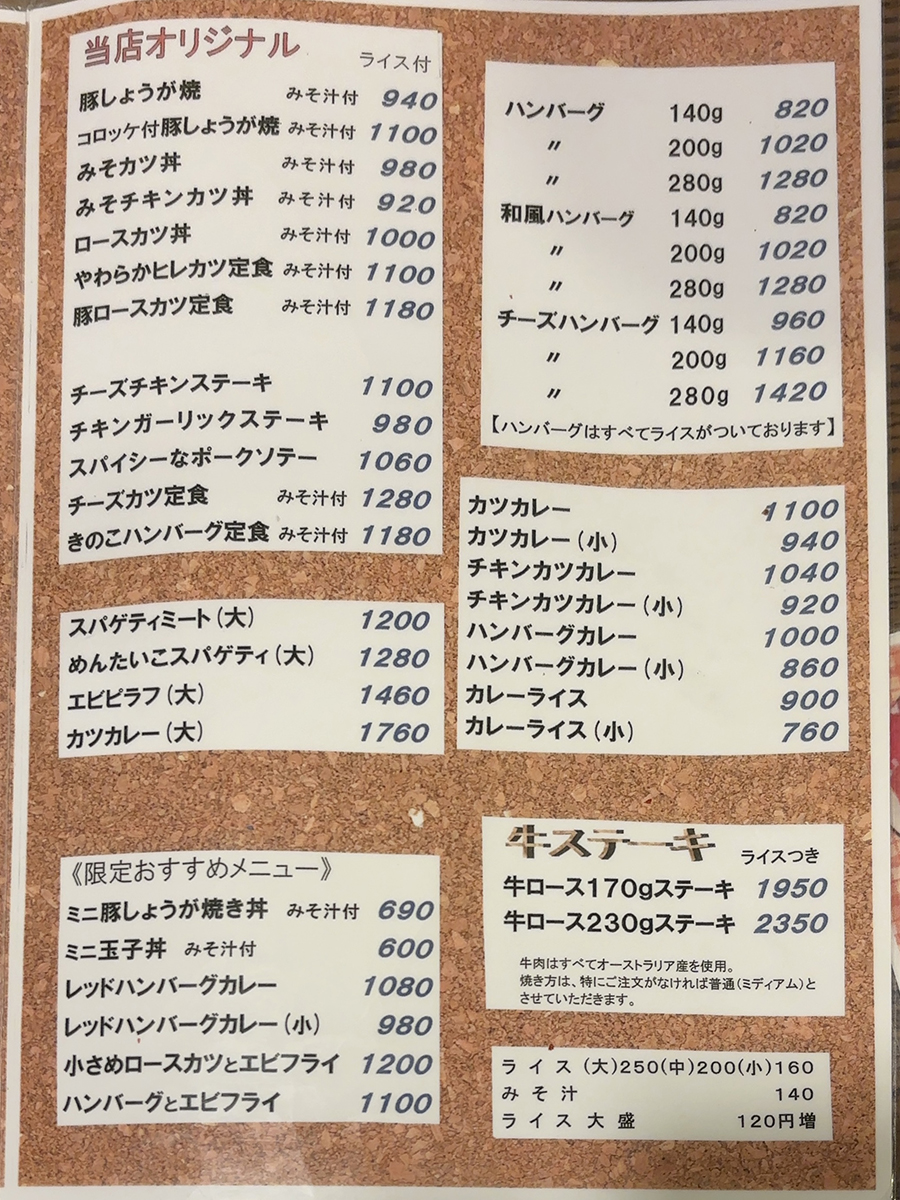 当店オリジナル
ライス付
豚しょうが焼 みそ汁付 940
コロッケ付豚しょうが焼 みそ汁付 1100
みそカツ丼 みそ汁付 980
みそチキンカツ丼 みそ汁付 920
ロースカツ丼 みそ汁付 1000
やわらかヒレカツ定食 みそ汁付 1100
豚ロースカツ定食 みそ汁付 1180
チーズチキンステーキ 1100
チキンガーリックステーキ 980
スパイシーなポークソテー 1060
チーズカツ定食 みそ汁付 1280
きのこハンバーグ定食 みそ汁付 1180
スパゲティミート(大) 1200
めんたいこスパゲティ(大) 1280
エビピラフ(大) 1460
カツカレー(大) 1760
《限定おすすめメニュー》
ミニ豚しょうが焼き丼 みそ汁付 690
ミニ玉子丼 みそ汁付 600
レッドハンバーグカレー 1080
レッドハンバーグカレー(小) 980
小さめロースカツとエビフライ 1200
ハンバーグとエビフライ 1100
ハンバーグ 140g 820
〃 200g 1020
〃 280g 1280
和風ハンバーグ 140g 820
〃 200g 1020
〃 280g 1280
チーズハンバーグ 140g 960
〃 200g 1160
〃 280g 1420
【ハンバーグはすべてライスがついております】
カツカレー 1100
カツカレー(小) 940
チキンカツカレー 1040
チキンカツカレー(小) 920
ハンバーグカレー 1000
ハンバーグカレー(小) 860
カレーライス 900
カレーライス(小) 760
牛ステーキ ライスつき
牛ロース170gステーキ 1950
牛ロース230gステーキ 2350
牛肉はすべてオーストラリア産を使用。
焼き方は、特にご注文がなければ普通(ミディアム)と
させていただきます。
ライス (大)250(中)200(小)160
みそ汁 140
ライス大盛 120円増